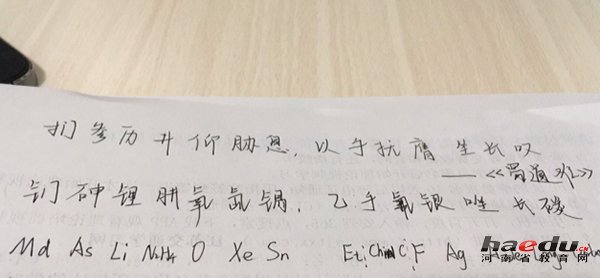 扪参历井仰胁息 以手抚膺坐长叹
——《蜀道难》
钔砷锂肼氧氙锡, 乙手氟银唑长碳
Md As Li N₂H₄ O Xe Sn Et, F Ag
haedu.cn
河南省教育网